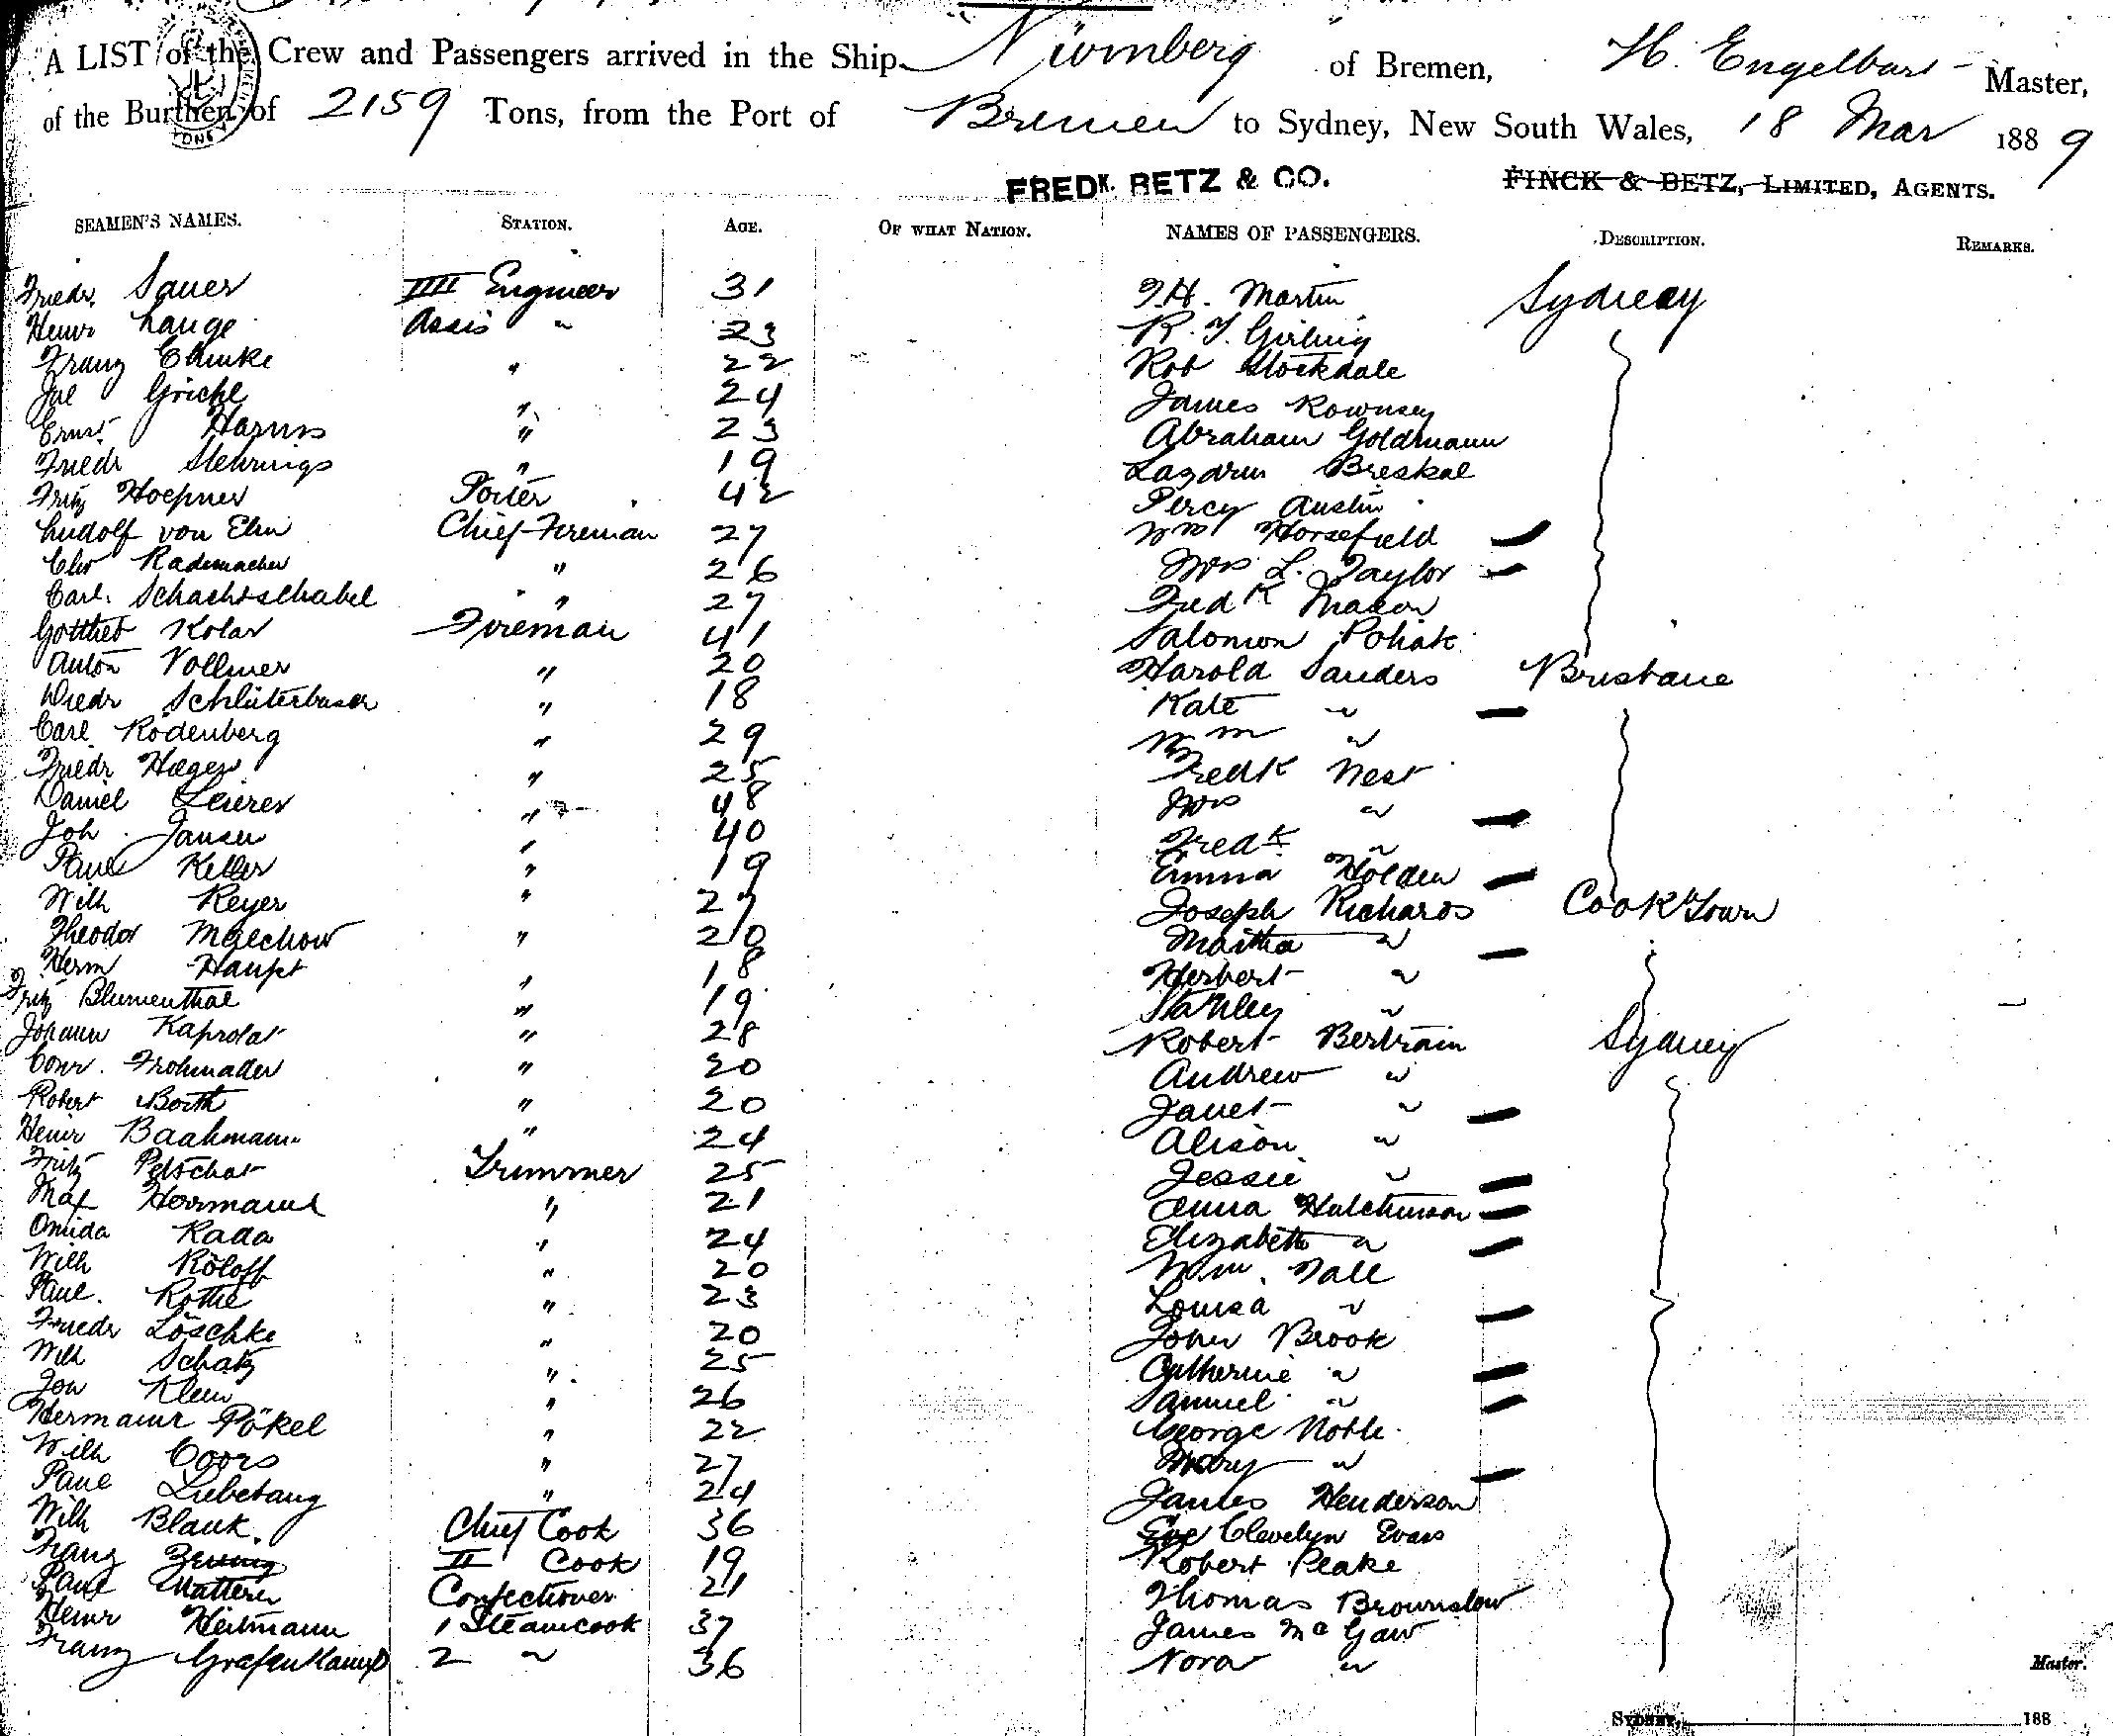 A LIST of the Crew and Passengers arrived in the Ship Nürnberg of Bremen, H. Engelbart Master,
of the Burthen of 2159 Tons, from the Port of Bremen to Sydney, New South Wales, 18 Mar 1889
FREDK. BETZ & CO. FINCK & BETZ, LIMITED, AGENTS.
SEAMEN'S NAMES. STATION. AGE. OF WHAT NATION. NAMES OF PASSENGERS. DESCRIPTION. REMARKS.
Friedr. Sauer IIII Engineer 31 Martin Sydney
Heinr Lange Assis " 23 Girling
Franz " 22 Rob Stockdale
Griehl " 24 James Rownsey
Ernst Harms " 23 Abraham Goldmann
Friedr Stehrings " 19 Breskal
Fritz Hoepner Porter 42 Percy Austin
Ludolf von Elm Chief Fireman 27 Wm Horsefield
Chr Rademacher " 26 Mrs L. Taylor
Carl. Schachtschabel " 27 Fredk Macon
Gottlieb Kolar Fireman 41 Salomon Pohak
Anton Vollmer " 20 Harold Sanders Brisbane
Diedr " 18 Kate "
Carl. Rodenberg " 29 Wm "
Friedr Hagen " 25 Fredk West
Daniel Leierer " 48 Mrs "
Joh. Jansen " 40 Fredk "
Paul Keller " 19 Emma Holden
Wilh Reyer " 27 Joseph Richards Cooktown
Theodor Malchow " 20 Martha "
Herm Haupt " 18 Herbert "
Fritz Blumenthal " 19 Stanley "
Johann Kaprolat " 28 Robert Bertrain Sydney
Conr. Frohmader " 20 Andrew "
Robert Borth " 20 Janet "
Heinr Baahmann " 24 Alison "
Fritz Petschat Trimmer 25 Jessie "
Max Herrmann " 21 Anna Hutchinson
Rada " 24 Elizabeth "
Wilh Roloff " 20 Wm. Tall
Paul. Rothe " 23 Louisa "
Friedr Löschke " 20 John Brook
Wilh Schatz " 25 Catherine "
Joh Klein " 26 Samuel "
Hermann Pökel " 22 George Noble
Wilh Coors " 27 Mary "
Paul Liebetang " 24 James Henderson
Wilh Blank. Chief Cook 36 Clevelyn Evans
Franz II Cook 19 Robert Peake
Paul Matterer Confectioner 21 Thomas Brownslow
Heinr Heitmann 1 Steamcook 37 James McGaw
Franz Grafenkamp 2 " 36 Nora "
Master.
SYDNEY, 188